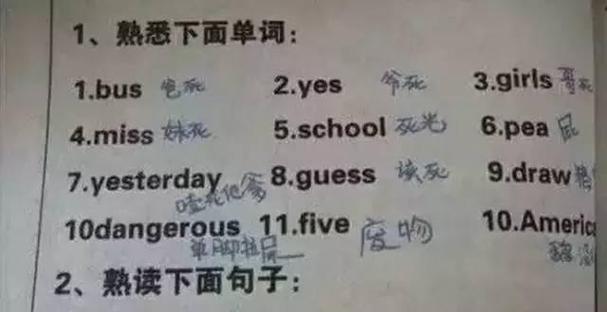 1、熟悉下面单词：
1.bus 包死 2.yes 爷死 3.girls 哥死
4.miss 妹死 5.school 死光 6.pea 屁
7.yesterday 8.guess 该死 9.draw
10dangerous 11.five 废物 10.Americ
单脚拉屎
2、熟读下面句子：